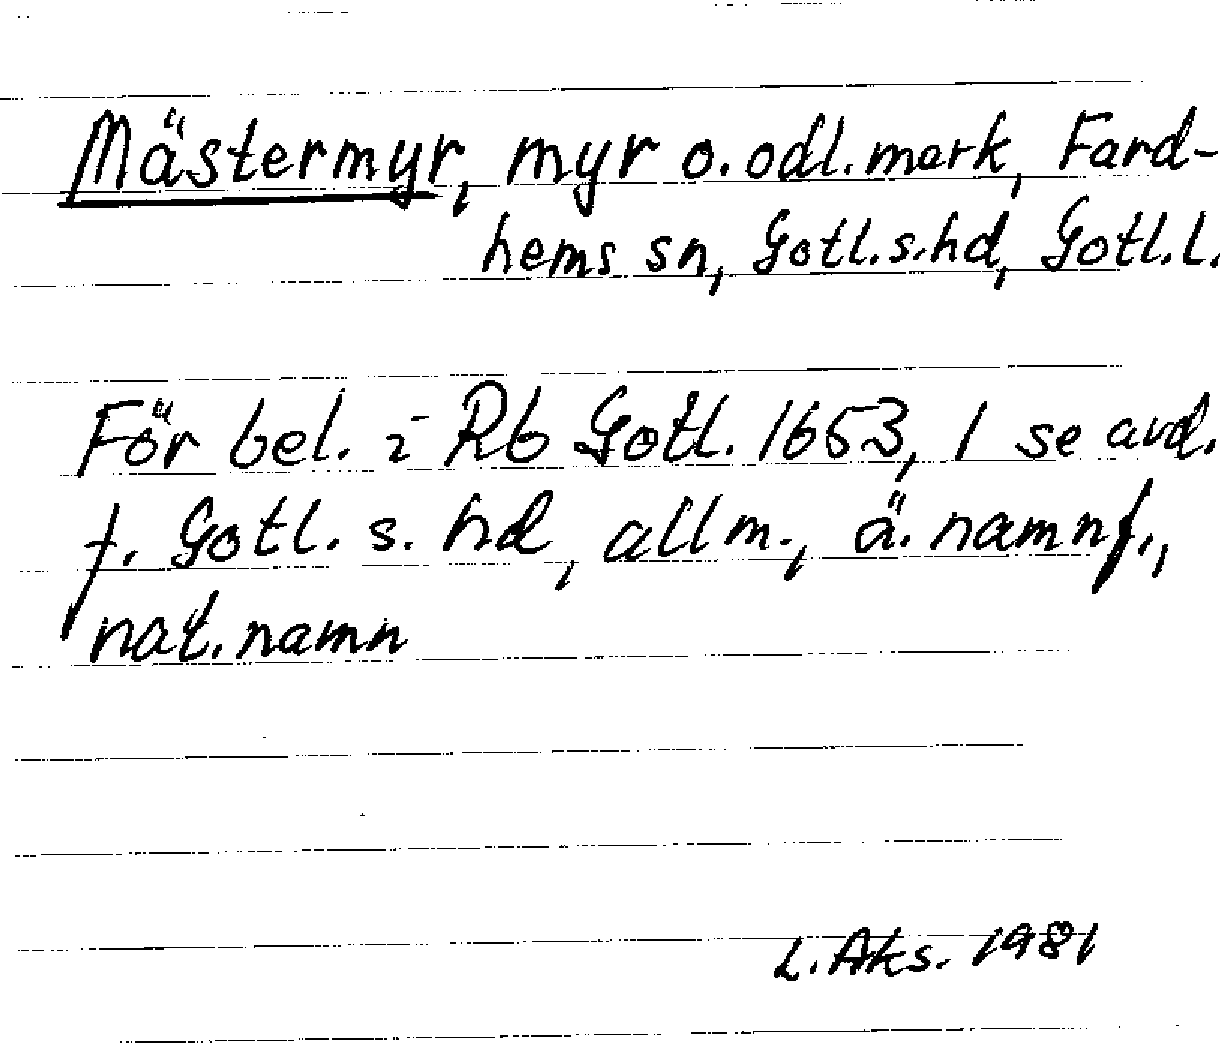 Mästermyr, myr o. odl. mark, Fard-
hems sn, Gotl. s. hd, Gotl. l.
För bel. i Rb Gotl. 1653, 1 se avd.
f. Gotl. s. hd, allm., ä. namnf.,
nat. namn
L. Aks. 1981